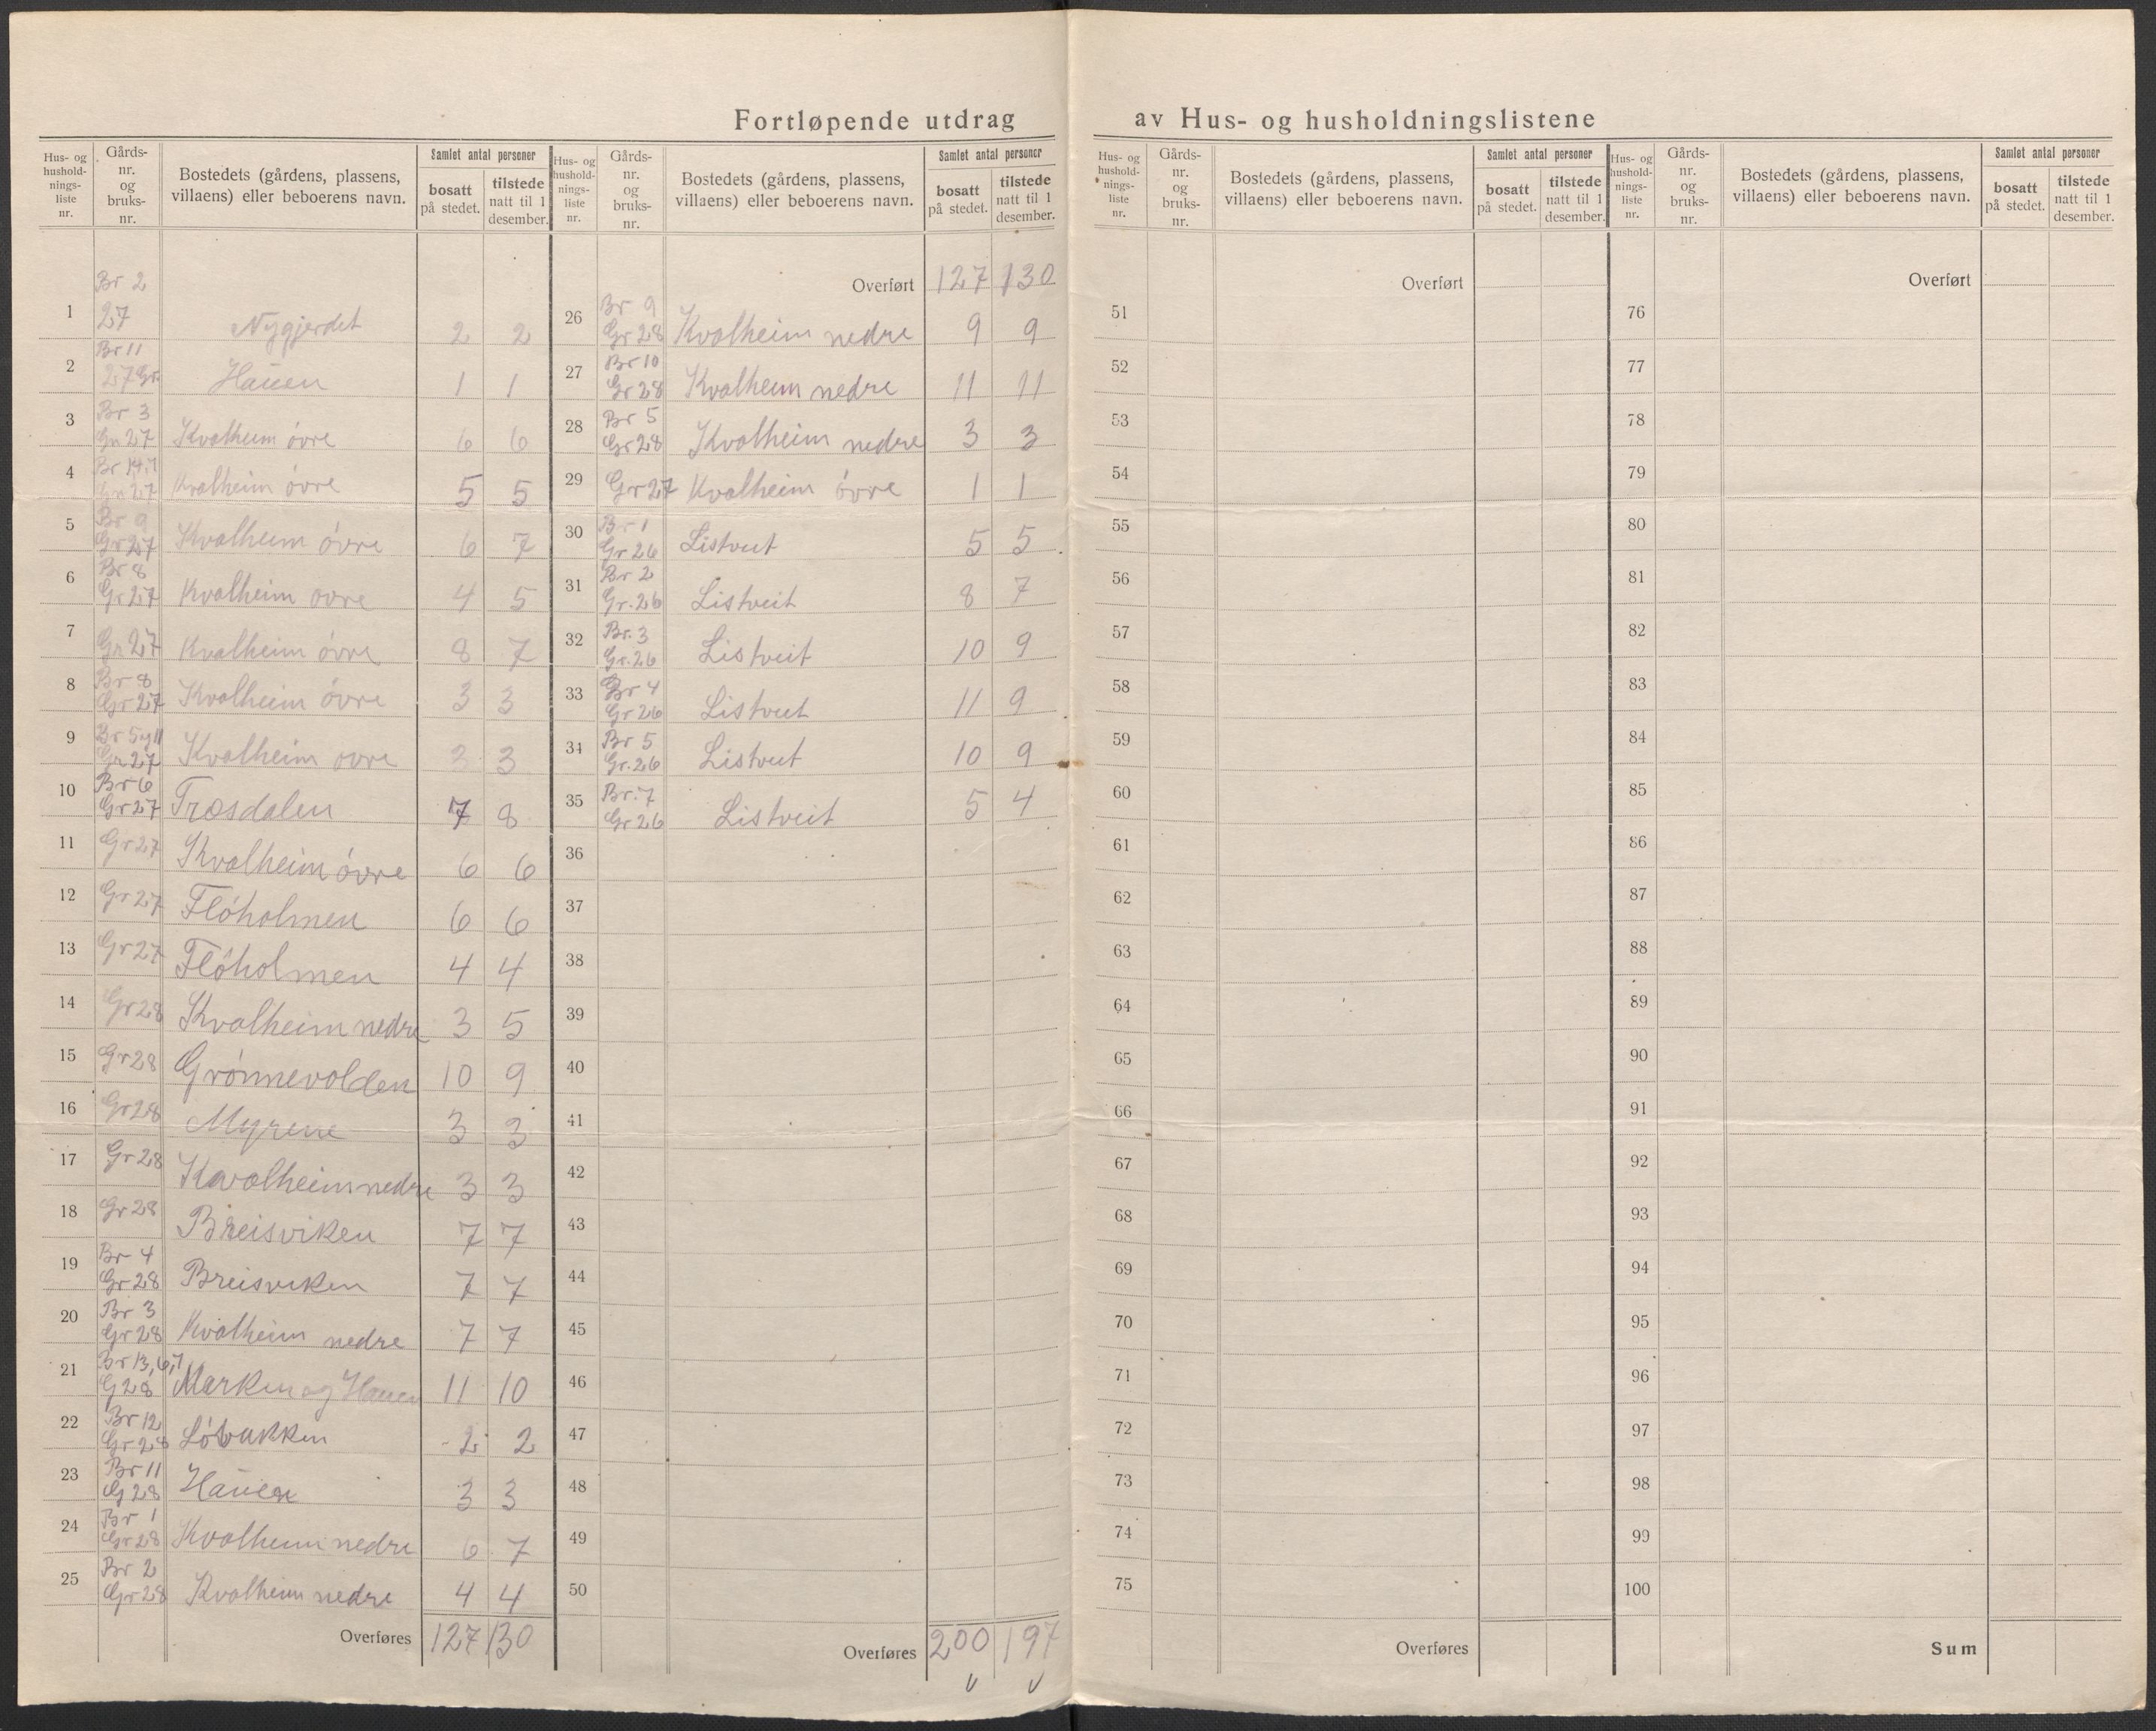 Fortløpende utdrag av Hus- og husholdningslistene
Hus- og hushold- nings- liste nr. | Gårds- nr. og bruks- nr. | Bostedets (gårdens, plassens, villaens) eller beboerens navn. | Samlet antal personer | bosatt på stedet. | tilstede natt til 1 desember.
1 Br 2 27 Nygjerdet 2 2
2 Br 11 27 Gr. Hauen 1 1
3 Br 3 Gr 27 Kvalheim óvre 6 6
4 Gr 27 Kvalheim óvre 5 5
5 Br 9 Gr 27 Kvalheim óvre 6 7
6 Br 8 Gr 27 Kvalheim ovre 4 5
7 Gr 27 Kvalheim óvre 8 7
8 Br 8 Gr 27 Kvalheim óvre 3 3
9 Br 5 og 11 Gr 27 Kvalheim ovre 3 3
10 Br 6 Gr 27 Træsdalen 7 8
11 Gr 27 Kvalheim óvre 6 6
12 Gr 27 Flóholmen 6 6
13 Gr 27 Flóholmen 4 4
14 Gr 28 Kvalheim nedre 3 5
15 Gr 28 Grónnevolden 10 9
16 Gr 28 Myrene 3 3
17 Gr 28 Kavalheim nedre 3 3
18 Gr 28 Breisviken 7 7
19 Br 4 Gr 28 Breisviken 7 7
20 Br 3 Gr 28 Kvalheim nedre 7 7
21 Br 13, 6, 7 G 28 Marken og Hauen 11 10
22 Br 12 Gr 28 Lóbakken 2 2
23 Br 11 G 28 Hauen 3 3
24 Br 1 Gr 28 Kvalheim nedre 6 7
25 Br 2 Gr 28 Kvalheim nedre 4 4
Overføres 127 130
Hus- og hushold- nings- liste nr. | Gårds- nr. og bruks- nr. | Bostedets (gårdens, plassens, villaens) eller beboerens navn. | Samlet antal personer | bosatt på stedet. | tilstede natt til 1 desember.
Overført 127 130
26 Br 9 Gr 28 Kvalheim nedre 9 9
27 Br 10 Gr 28 Kvalheim nedre 11 11
28 Br 5 Gr 28 Kvalheim nedre 3 3
29 Gr 27 Kvalheim óvre 1 1
30 Br 1 Gr 26 Listveit 5 5
31 Br 2 Gr. 26 Listveit 8 7
32 Br. 3 Gr. 26 Listveit 10 9
33 Br 4 Gr 26 Listveit 11 9
34 Br 5 Gr. 26 Listveit 10 9
35 Br. 7 Gr 26 Listveit 5 4
36
37
38
39
40
41
42
43
44
45
46
47
48
49
50
Overføres 200 197
Hus- og hushold- nings- liste nr. | Gårds- nr. og bruks- nr. | Bostedets (gårdens, plassens, villaens) eller beboerens navn. | Samlet antal personer | bosatt på stedet. | tilstede natt til 1 desember.
Overført
51
52
53
54
55
56
57
58
59
60
61
62
63
64
65
66
67
68
69
70
71
72
73
74
75
Overføres
Hus- og hushold- nings- liste nr. | Gårds- nr. og bruks- nr. | Bostedets (gårdens, plassens, villaens) eller beboerens navn. | Samlet antal personer | bosatt på stedet. | tilstede natt til 1 desember.
Overført
76
77
78
79
80
81
82
83
84
85
86
87
88
89
90
91
92
93
94
95
96
97
98
99
100
Sum